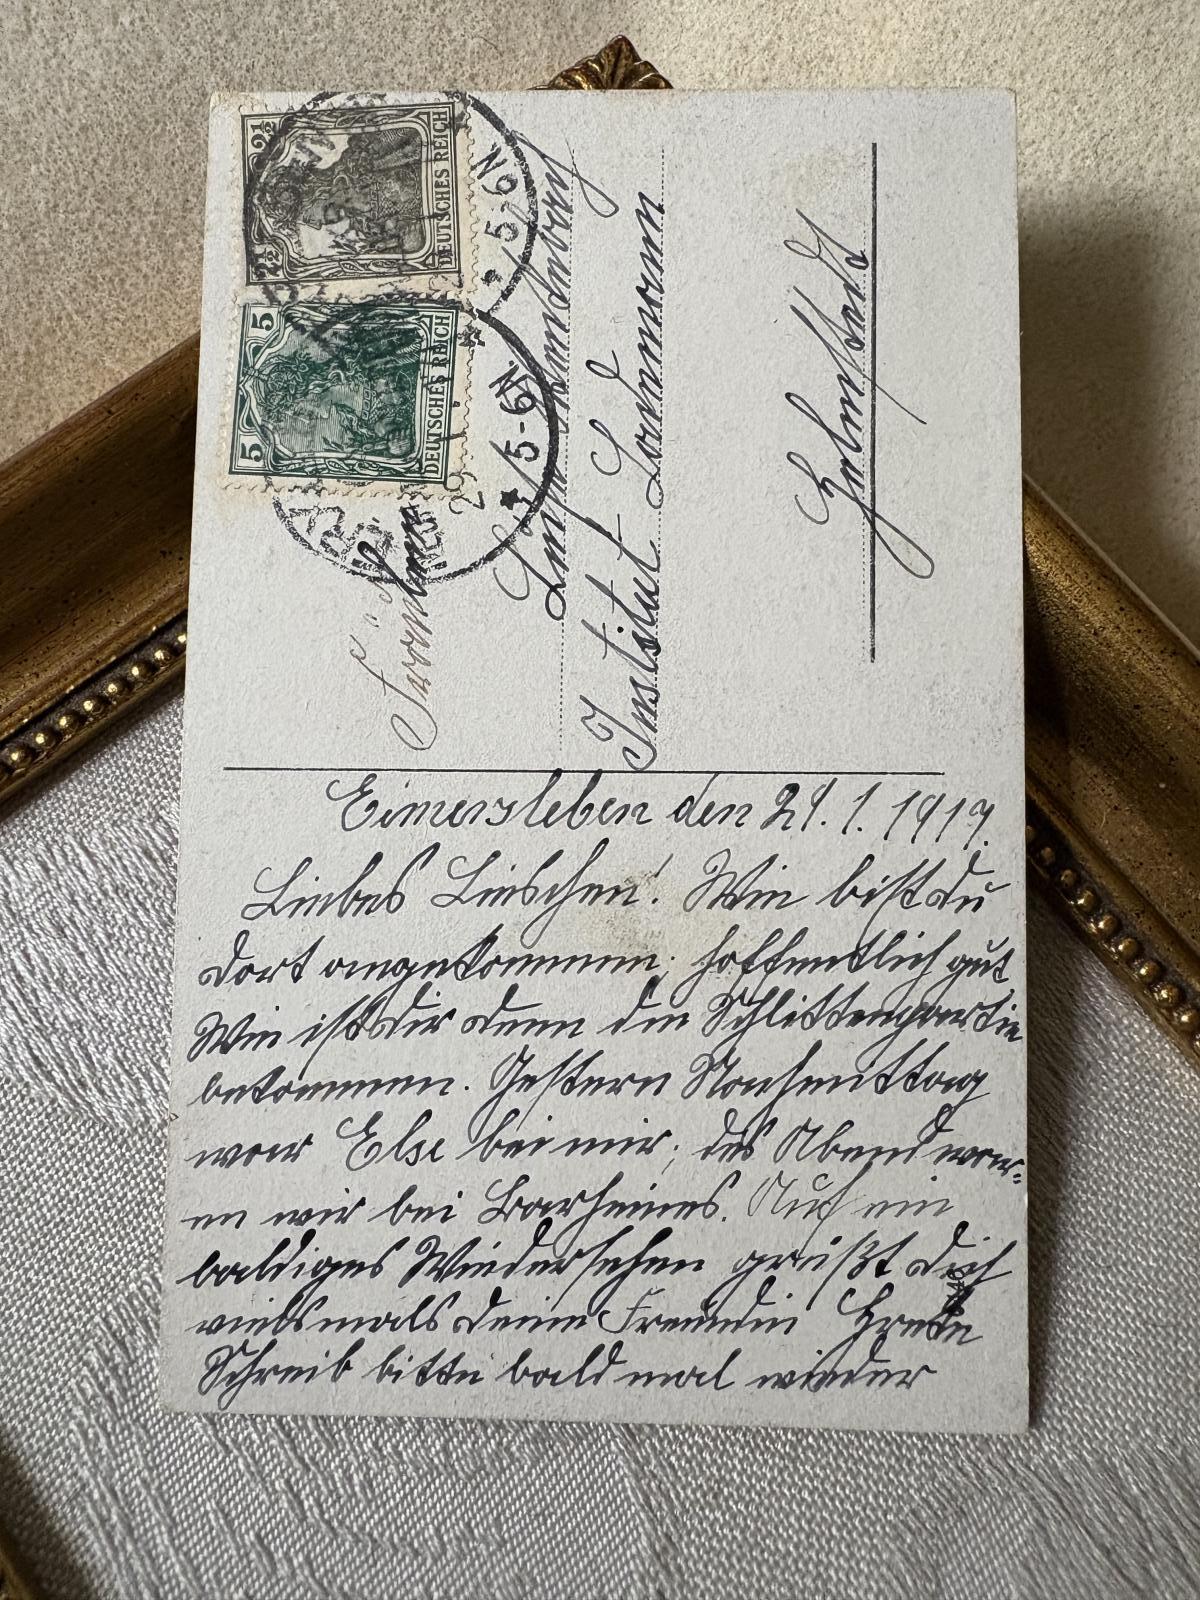 2½ 2½
DEUTSCHES REICH
5 5
DEUTSCHES REICH
5-6N.
29. 1.
5-6N.
Fräulein
Institut Lademann
Helmstedt
Eimersleben den 29. 1. 1919.
Liebes Lieschen! Wie bist du
dort angekommen; hoffentlich gut
Wie ist dir denn die Schlittenpartie
bekommen. Gestern Nachmittag
war Else bei mir; des Abend war=
en wir bei Barheines. Auf ein
baldiges Wiedersehen grüßt dich
vielsmals deine Freundin Grete
Schreib bitte bald mal wieder